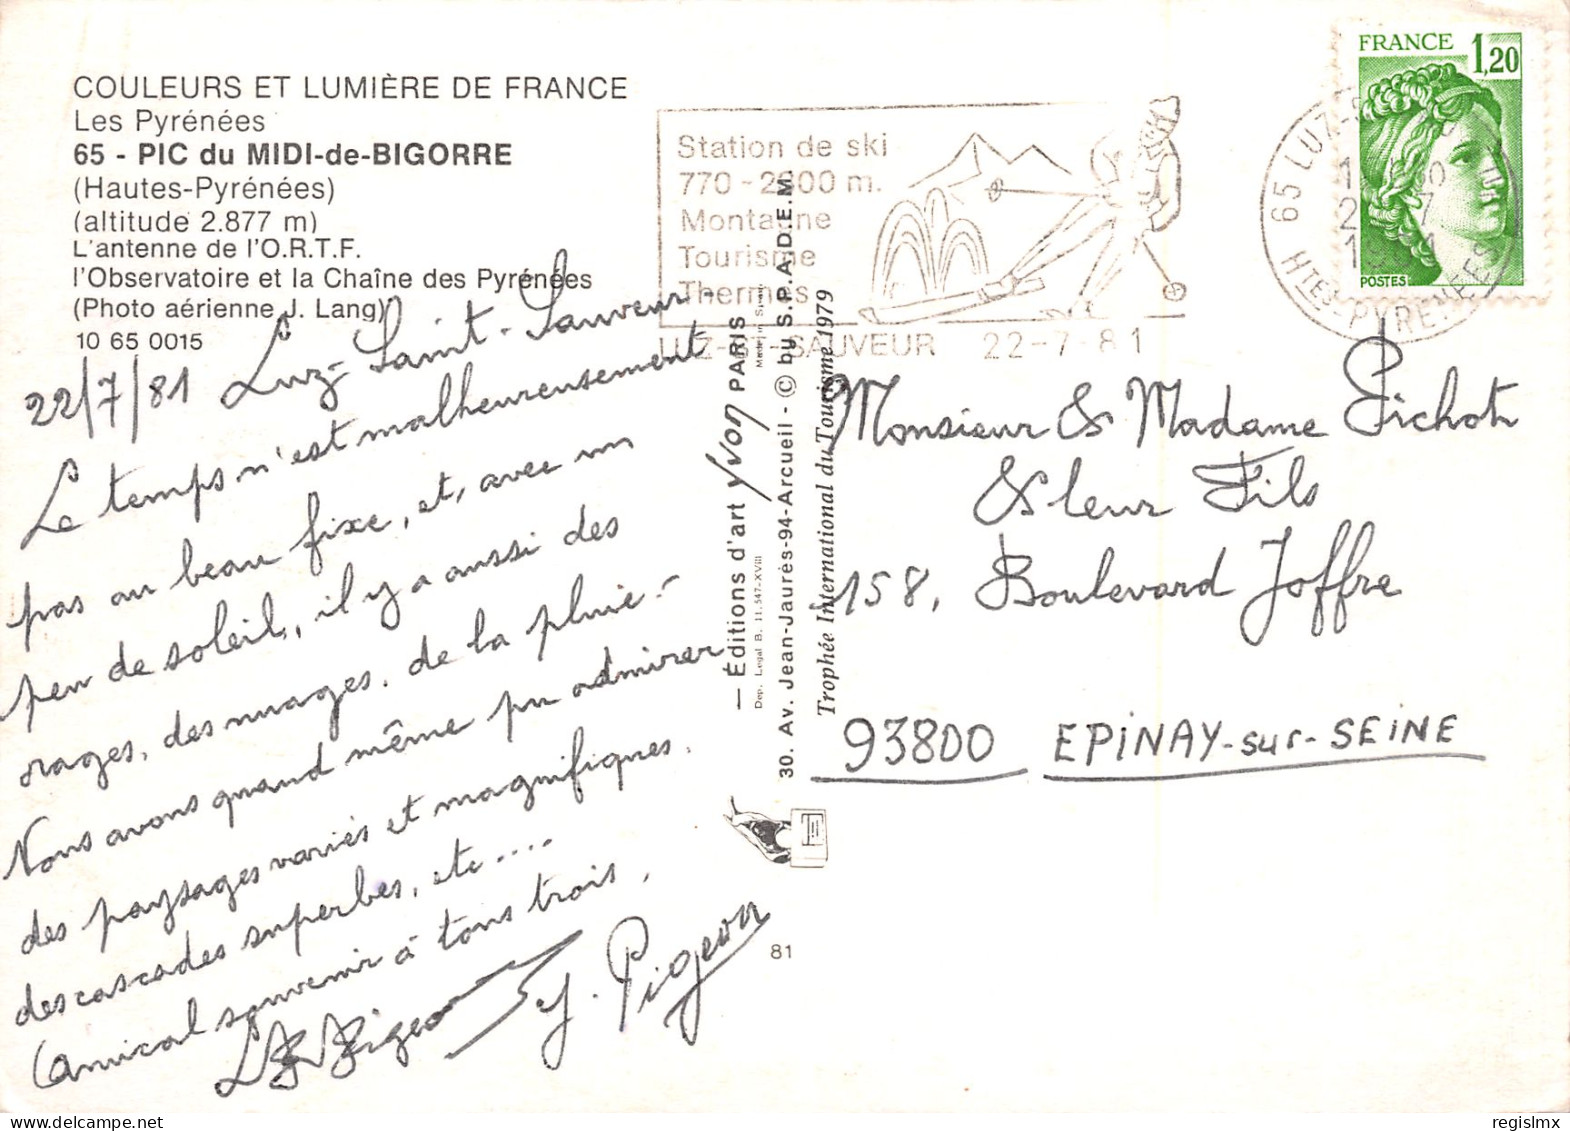 COULEURS ET LUMIÈRE DE FRANCE
Les Pyrénées
65 - PIC du MIDI-de-BIGORRE
(Hautes-Pyrénées)
(altitude 2.877 m)
L'antenne de l'O.R.T.F.
l'Observatoire et la Chaîne des Pyrénées
(Photo aérienne J. Lang)
10 65 0015
22/7/81 Luz-Saint-Sauveur.
Le temps n'est malheureusement
pas au beau fixe, et, avec un
peu de soleil, il y a aussi des
orages, des nuages, de la pluie.
Nous avons quand même pu admirer
des paysages variés et magnifiques,
des cascades superbes, etc....
Amical souvenir à tous trois,
J. Pigeon
— Éditions d'art yvon PARIS
Dep. Legal B. 11.547-XVIII
30. Av. Jean-Jaurès-94-Arcueil - © by S.P.A.D.E.M.
Trophée International du Tourisme 1979
81
Station de ski
770-2000 m.
Montagne
Tourisme
Thermes
LUZ-ST-SAUVEUR 22-7-81
FRANCE 1,20
POSTES
65 LUZ-
HTES-PYRENEES
Monsieur & Madame Pichot
& leur Fils
158, Boulevard Joffre
93800 EPiNAY-sur-SEiNE
regislmx